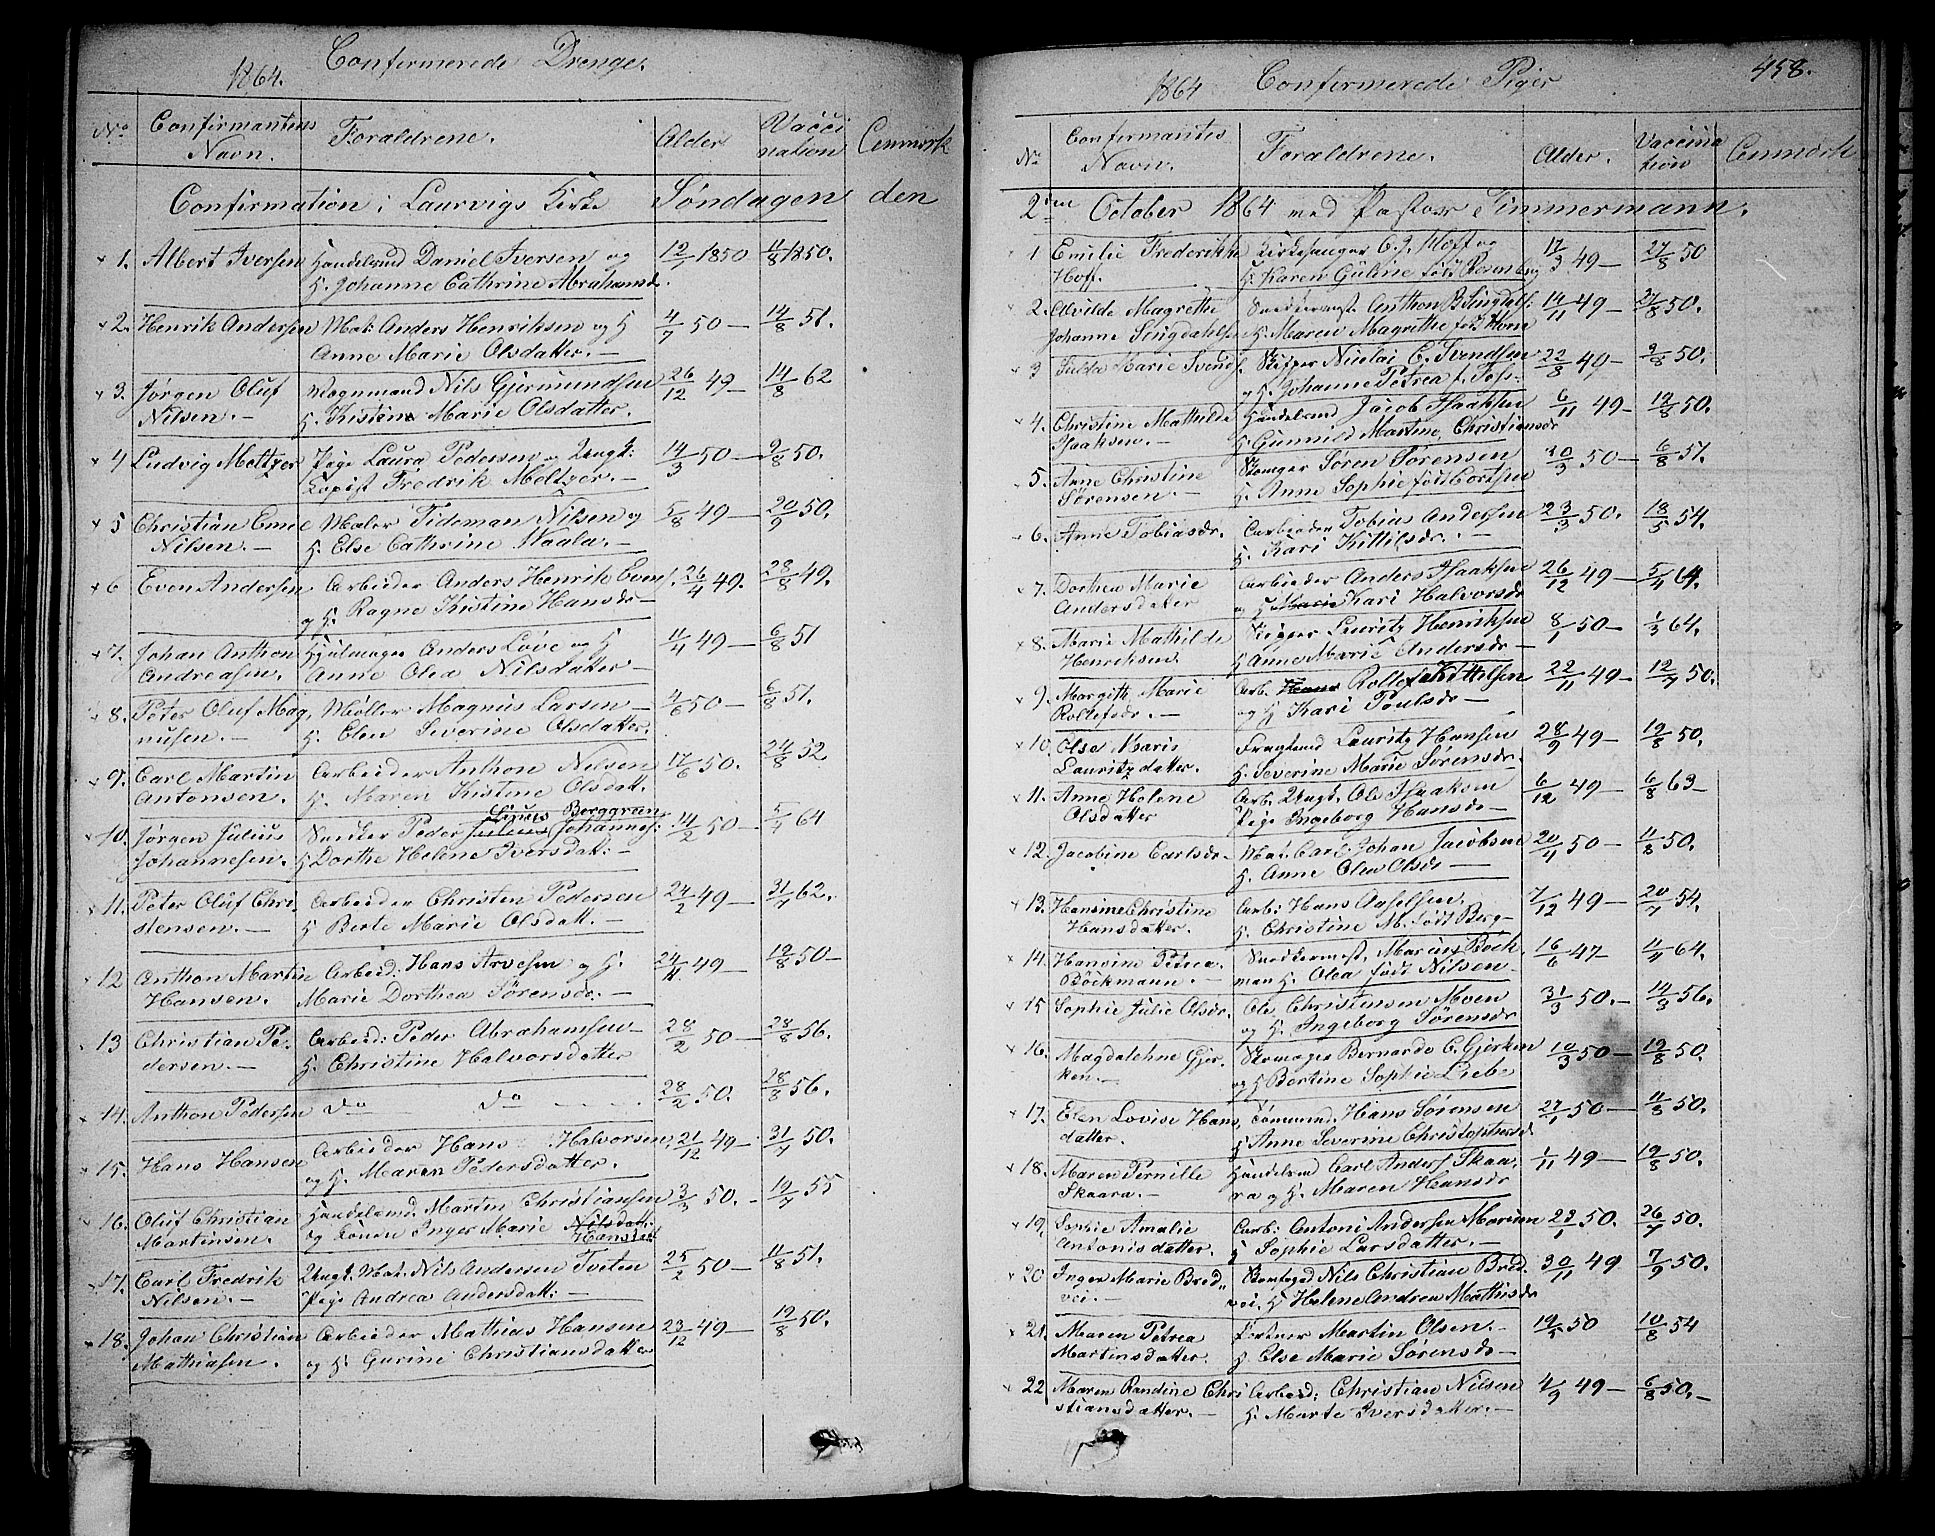 1864. Confirmerede Drenge.
No Confirmantens Navn. Forældrene. Alder Vacci nation Anmærk
Confirmation i Laurvigs Kirke Søndagen den
1. Albert Iversen Handelsmd Daniel Iversen og 12/1 1850 11/8 1850.
H. Johanne Cathrine Abrahamsd.
2. Henrik Andersen Mat: Anders Henriksen og H 4/7 50 — 14/8 51.
Anne Marie Olsdatter. —
3. Jørgen Oluf Vognmand Nils Gjermundsen 26/12 49 — 14/8 62
Nilsen. — H. Kristine Marie Olsdatter.
4 Ludvig Meltzer Pige Laura Pedersen og Ungk: 14/3 50 — 9/8 50.
Copist Fredrik Meltzer. —
5 Christian Emil Maler Tideman Nilsen og 5/8 49 — 20/9 50.
Nilsen. — H. Else Cathrine Waale. —
6 Even Andersen Arbeider Anders Henrik Even 26/4 49. 28/8 49.
og H. Ragne Kistine Hansdr —
7. Johan Anthon Hjulmager Anders Løve og H 11/4 49 — 6/8 51
Andreasen. Anne Olea Nilsdatter —
8. Peter Oluf Mag, Møller Magnus Larsen — 4/6 50 — 6/8 51.
nusen. — H. Elen Severine Olsdatter.
9. Carl Martin Arbeider Anthon Nilsen 17/6 50. 24/8 52
Antonsen. H. Maren Kistine Olsdatt.
Linus Berggreen
10. Jørgen Julius Snedker Peder Julius Johannes: 14/2 50 — 5/7 64
Johannesen. H Dorthe Helene Iversdat: —
11. Peter Oluf Chri Arbeider Christen Pedersen 24/2 49 — 31/7 62.
stensen. — H Berte Marie Olsdatt. —
12 Anthon Martin Arbeid: Hans Arvesen og H. 24/11 49 — 19/8 50 —
Hansen. Marie Dorthea Sørensdr. —
13 Christian Pe- Arbeid: Peder Abrahamsen — 28/2 50 — 28/8 56.
dersen. — H. Christine Halvorsdatter
14. Anthon Pedersen do do 28/2 50. 28/8 56.
15. Hans Hansen Arbeider Hans Halvorsen 21/12 49 — 31/7 50.
og H. Maren Pedersdatter.
16. Oluf Christian Handelsmd. Martin Christiansen 3/3 50. — 19/7 55
Martinsen. og Konen Inger Marie Nilsdatt:
17. Carl Fredrik Ungk. Mat. Nils Andersen Tveten 25/2 50 — 11/8 51.
Nilsen. — Pige Andrea Andersdatt: —
18. Johan Christian Arbeider Mathias Hansen 23/12 49 — 19/8 50.
Mathiasen. og H. Gurine Christiansdatter
458.
1864 Confirmerede Piger
No Confirmantes Navn. Forældrene. Alder. Vaccina tion Anmærk
2den October 1864 med Pastor Timmermann.
1 Emilie Frederikke Kirkesanger C. J. Hoff og 17/3 49 — 27/8 50
Hoff. H. Karen Guline født
2. Alvilde Magrethe Snedkermest. Anthon B Lingdals: 14/11 49 — 27/8 50.
Johanne Lingdahlsen H. Maren Magrethe født Horn
3 Hulda Marie Svends. Skipper Nicolai C. Svendsen 22/8 49 — 9/8 50.
og H. Johanne Petrea f. Foss:
4. Christine Mathilde Handelsmd Jacob Isaksen 6/11 49 — 19/8 50.
Isaksen. — H Gunnild Martine Christiansdr
5. Anne Christine Skomager Søren Sørensen 30/3 50 — 6/8 51.
Sørensen. — H. Anne Sophie født Cortsen
6. Anne Tobiasdr. Arbeider Tobias Andersen 23/3 50. 18/5 54.
H. Kari Kittilsdr. —
7. Dorthea Marie Arbeider Anders Isaksen 26/12 49 — 5/4 64.
Andersdatter og H Marie Kari Halvorsdr
8. Marie Mathilde Lauritz Henriksen 8/1 50 — 1/3 64.
Henriksen. H Anne Marie Andersdr
9. Margith Marie Arb. Hans Rollef Kittelsen 22/11 49 — 12/7 50.
Rollefsdr. — og H Kari Poulsdr —
10. Olse Maris Fragtemd Lauritz Hansen 28/9 49 — 19/8 50.
Lauritzdatter. H. Severine Marie Sørensdr.
11. Anne Helene Arb. Ungk. Ole Isaksen 6/12 49 — 6/8 63 —
Olsdatter Pige Ingeborg Hansdr —
12. Jacobine Carlsdr — Mat. Carl Johan Jacobsen 20/4 50 — 11/8 50.
H. Anne Olea Olsdr —
13. Hansine Christine Arb: Hans Axelsen. 7/12 49 — 20/7 54.
Hansdatter. H. Christine M. født Berg —
14. Hansine Petrea Snedkermest. Marius Böck 16/6 47 — 11/7 64.
Böckmann. — man H. Olea født Nilsen —
15 Sophie Julie Olsdr. Ole Christensen Moen 31/3 50. — 14/8 56.
og H. Ingeborg Sørensdr
16. Magdalehne Gjer Skomager Bernardo C. Gjerken 10/3 50 — 19/8 50.
ken. — og H Bertine Sophie Liebe
17. Elen Lovise Hans, Tømmermd. Hans Sørensen 27/1 50 — 11/8 50.
datter. H Anne Severine Christophersdr
18. Maren Pernille Handelsmd Carl Anders Skaa, 1/11 49 — 19/8 50.
Skaara. — ra og H. Maren Hansdr
19. Sophie Amalie Arb: Antoni Andersen Marium 23/1 50. 26/7 50.
Antonisdatter. H Sophie Larsdatter. —
20 Inger Marie Bred„ Nils Christian Bred. 30/11 49 7/9 50.
vei. — vei. H Helene Andrea Mathisdr
21. Maren Petrea Martin Olsen. — 19/5 50 10/8 54
Martinsdatter. H. Else Marie Sørensdr —
22 Maren Randine Chri Arbeid: Christian Nilsen 4/9 49 — 6/8 50. —
stiansdatter. — H. Marte Iversdatter. —